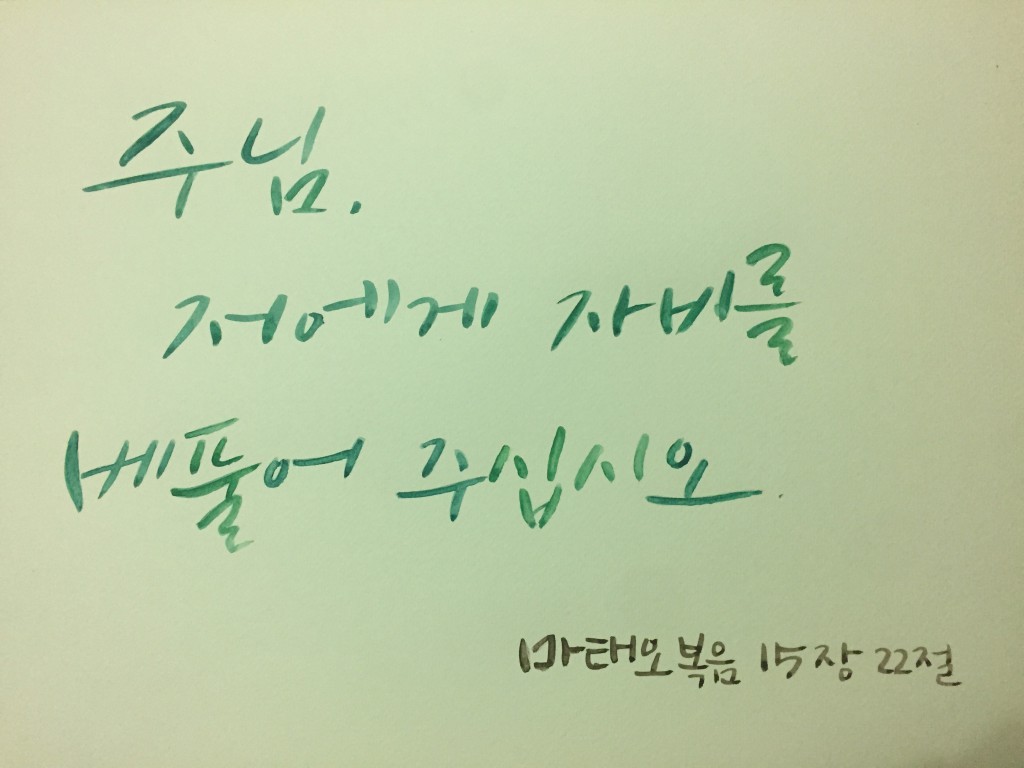 주님.
저에게 자비를
베풀어 주십시오.
마태오복음 15장 22절